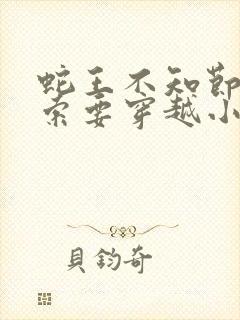 蛇王不知节
索要穿越小
貝鈞奇